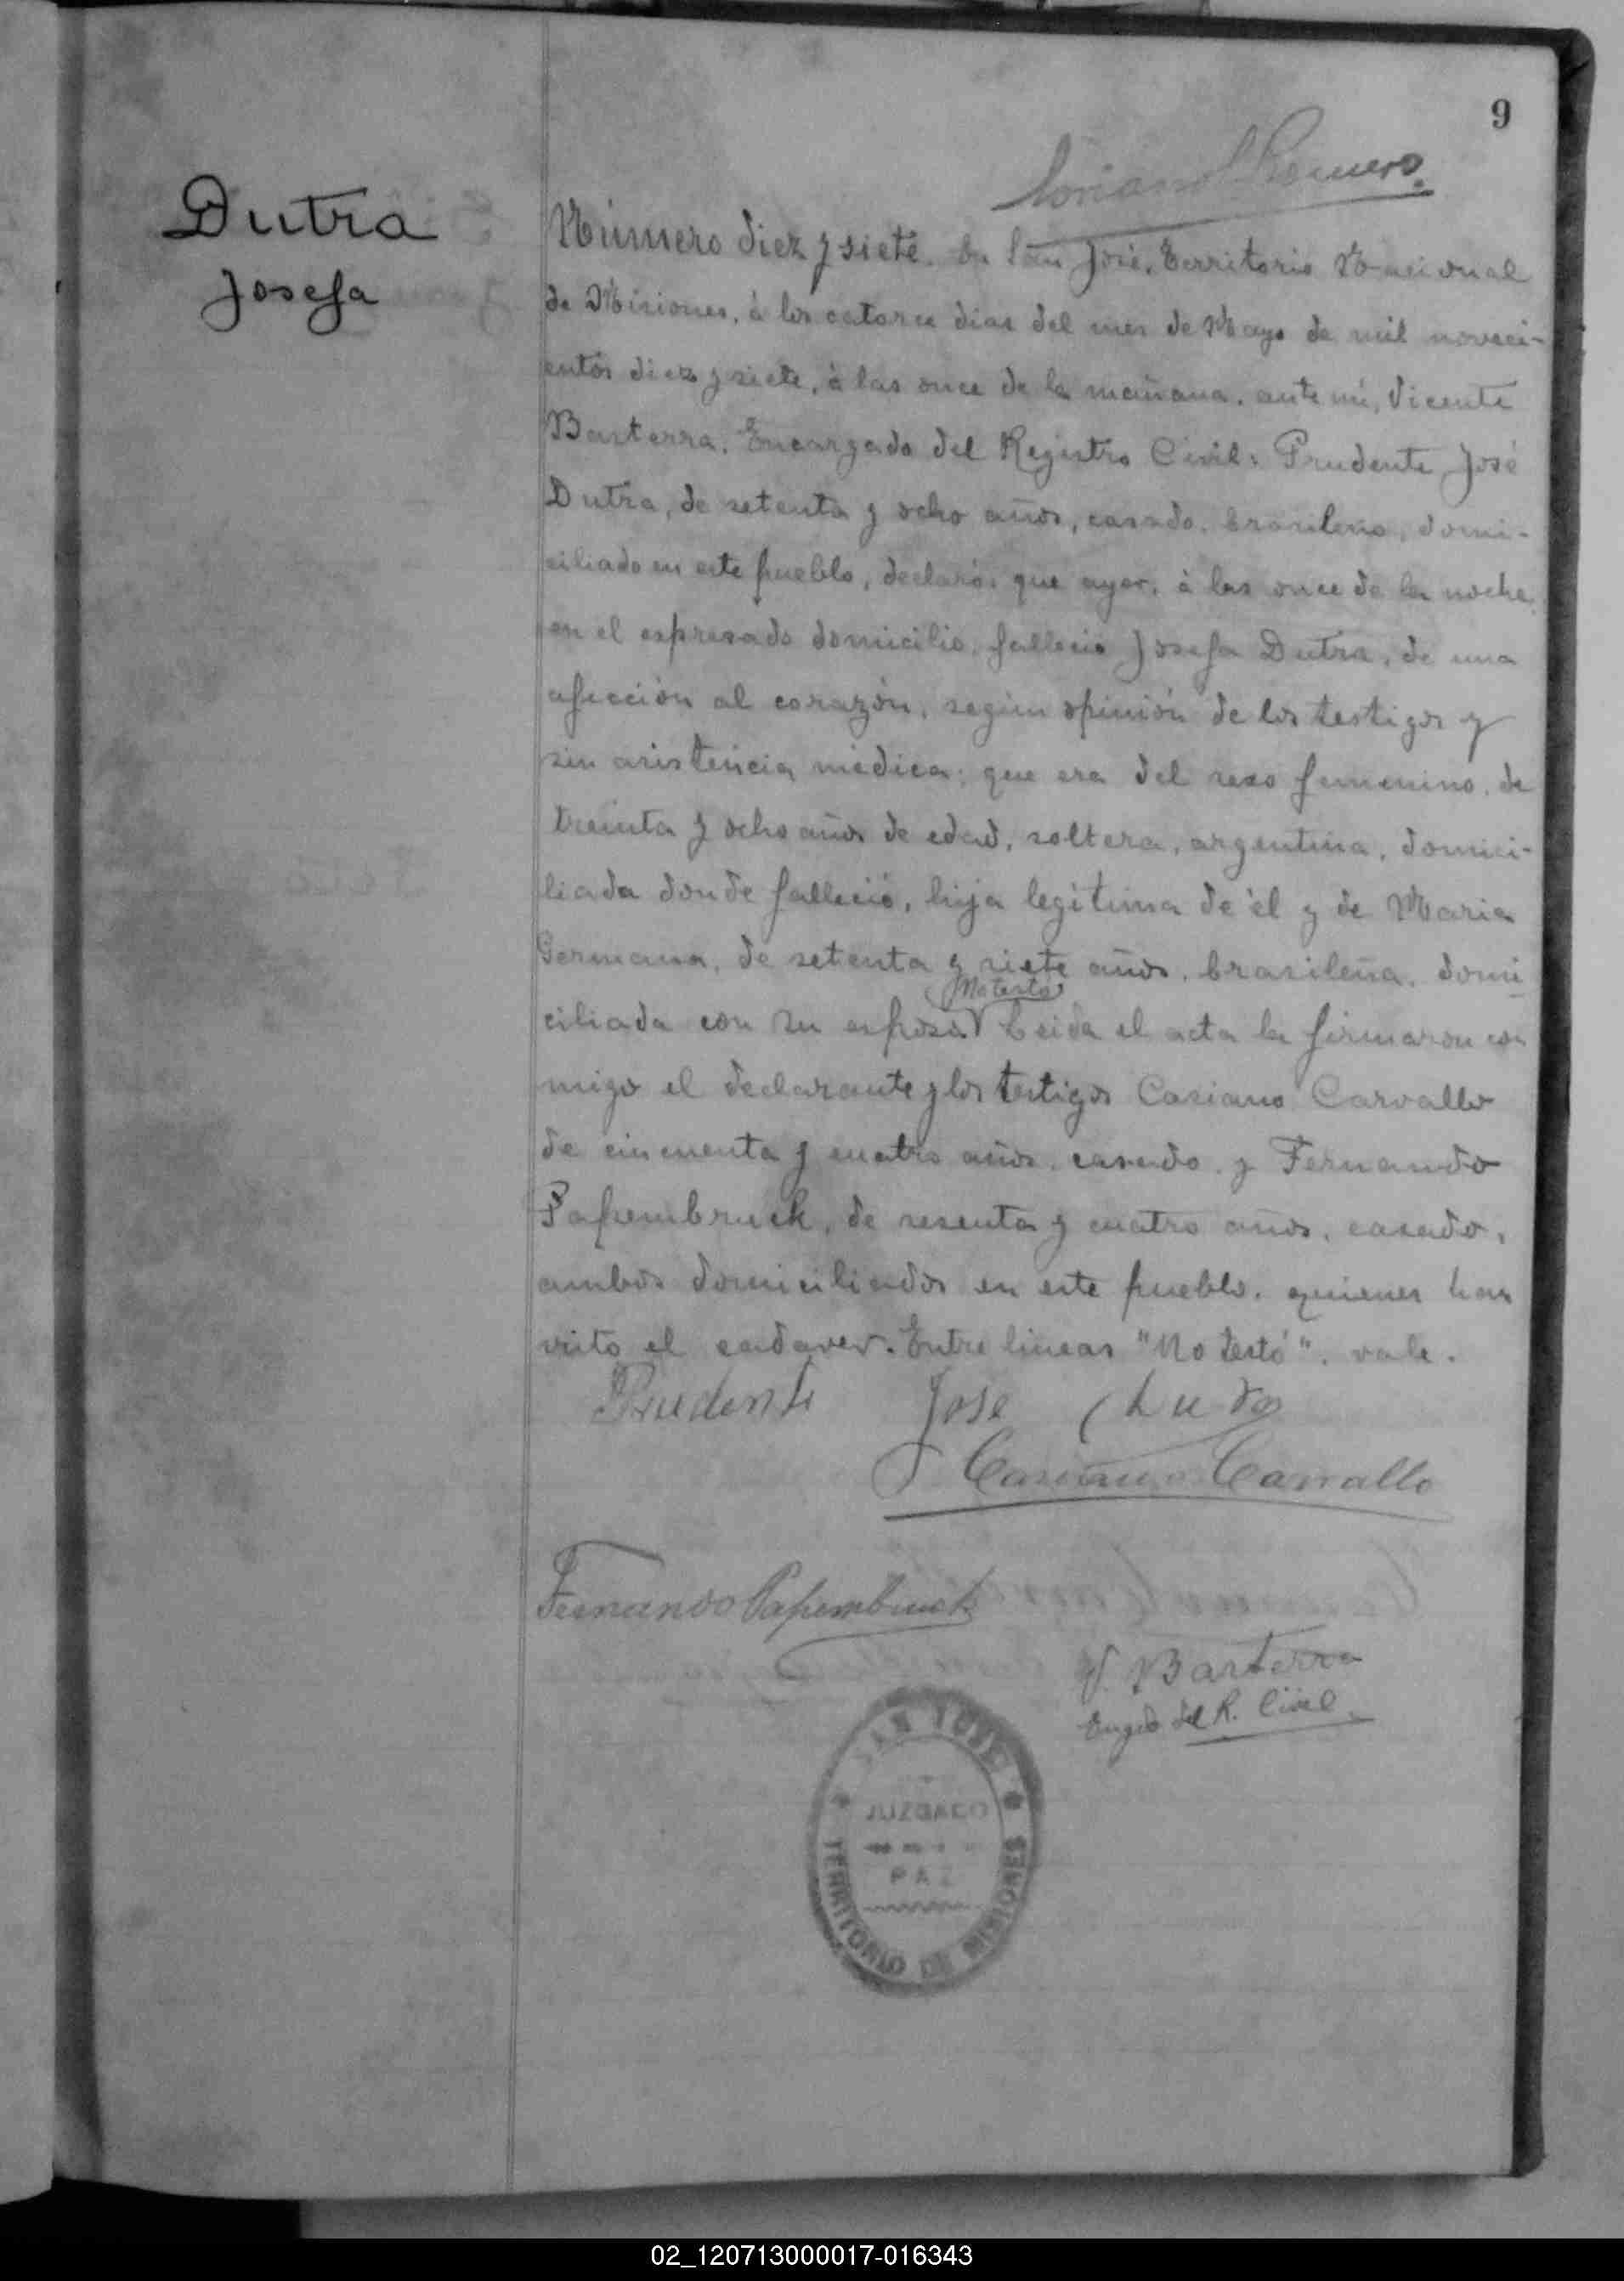 9
Soriano Romero.
Dutra
Josefa
Número diez y siete. En San José, Territorio Nacional
de Misiones, à los catorce dias del mes de Mayo de mil noveci-
entos diez y siete, à las once de la mañana, ante mí, Vicente
Basterra, Encargado del Registro Civil: Prudente José
Dutra, de setenta y ocho años, casado, brasileño, domi-
ciliado en este pueblo, declaró: que ayer, à las once de la noche,
en el espresado domicilio, falleció Josefa Dutra, de una
afección al corazón, según opinión de los testigos y
sin asistencia médica; que era del sexo femenino, de
treinta y ocho años de edad, soltera, argentina, domici-
liada donde falleció, hija legítima de él y de Maria
Germana, de setenta y siete años, brasileña, domi-
(No testó)
ciliada con su esposo. Leida el acta la firmaron con
migo el declarante y los testigos Casiano Carvallo
de cincuenta y cuatro años, casado, y Fernando
Papembruck, de sesenta y cuatro años, casado,
ambos domiciliados en este pueblo, quienes han
visto el cadaver. Entre lineas "No testó". vale.
Prudente José
Casiano Carvallo
Fernando Papembruck
V. Basterra
Engdo del R. Civil.
SAN JOSE
JUZGADO
PAZ
TERRITORIO DE MISIONES
02_120713000017-016343